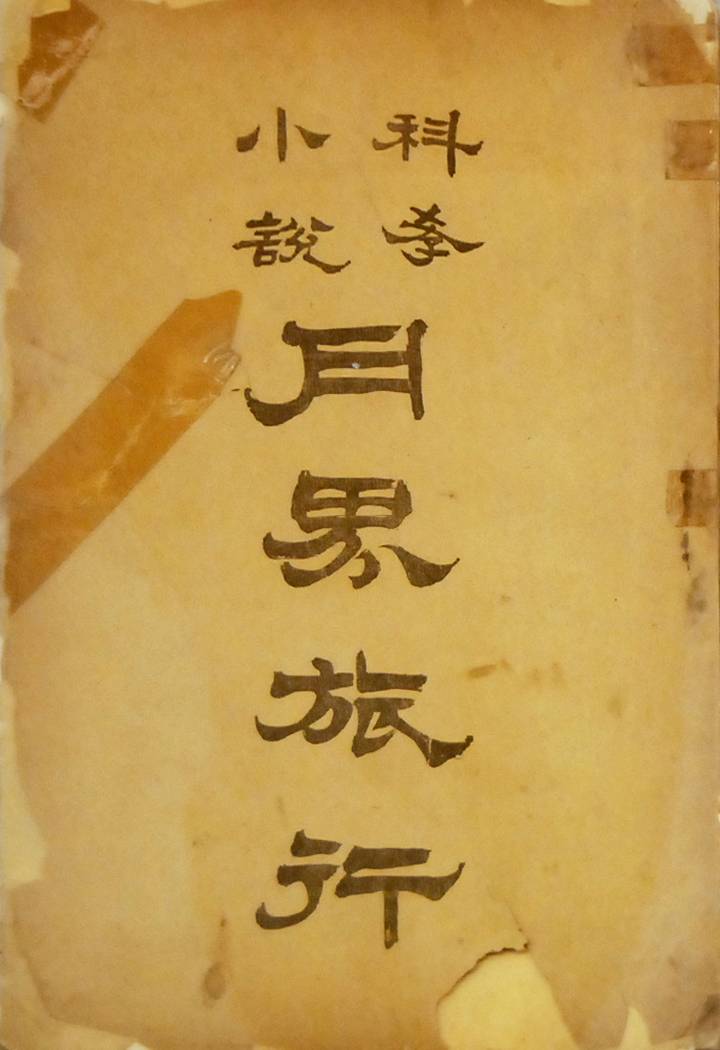 科学
小說
月界旅行